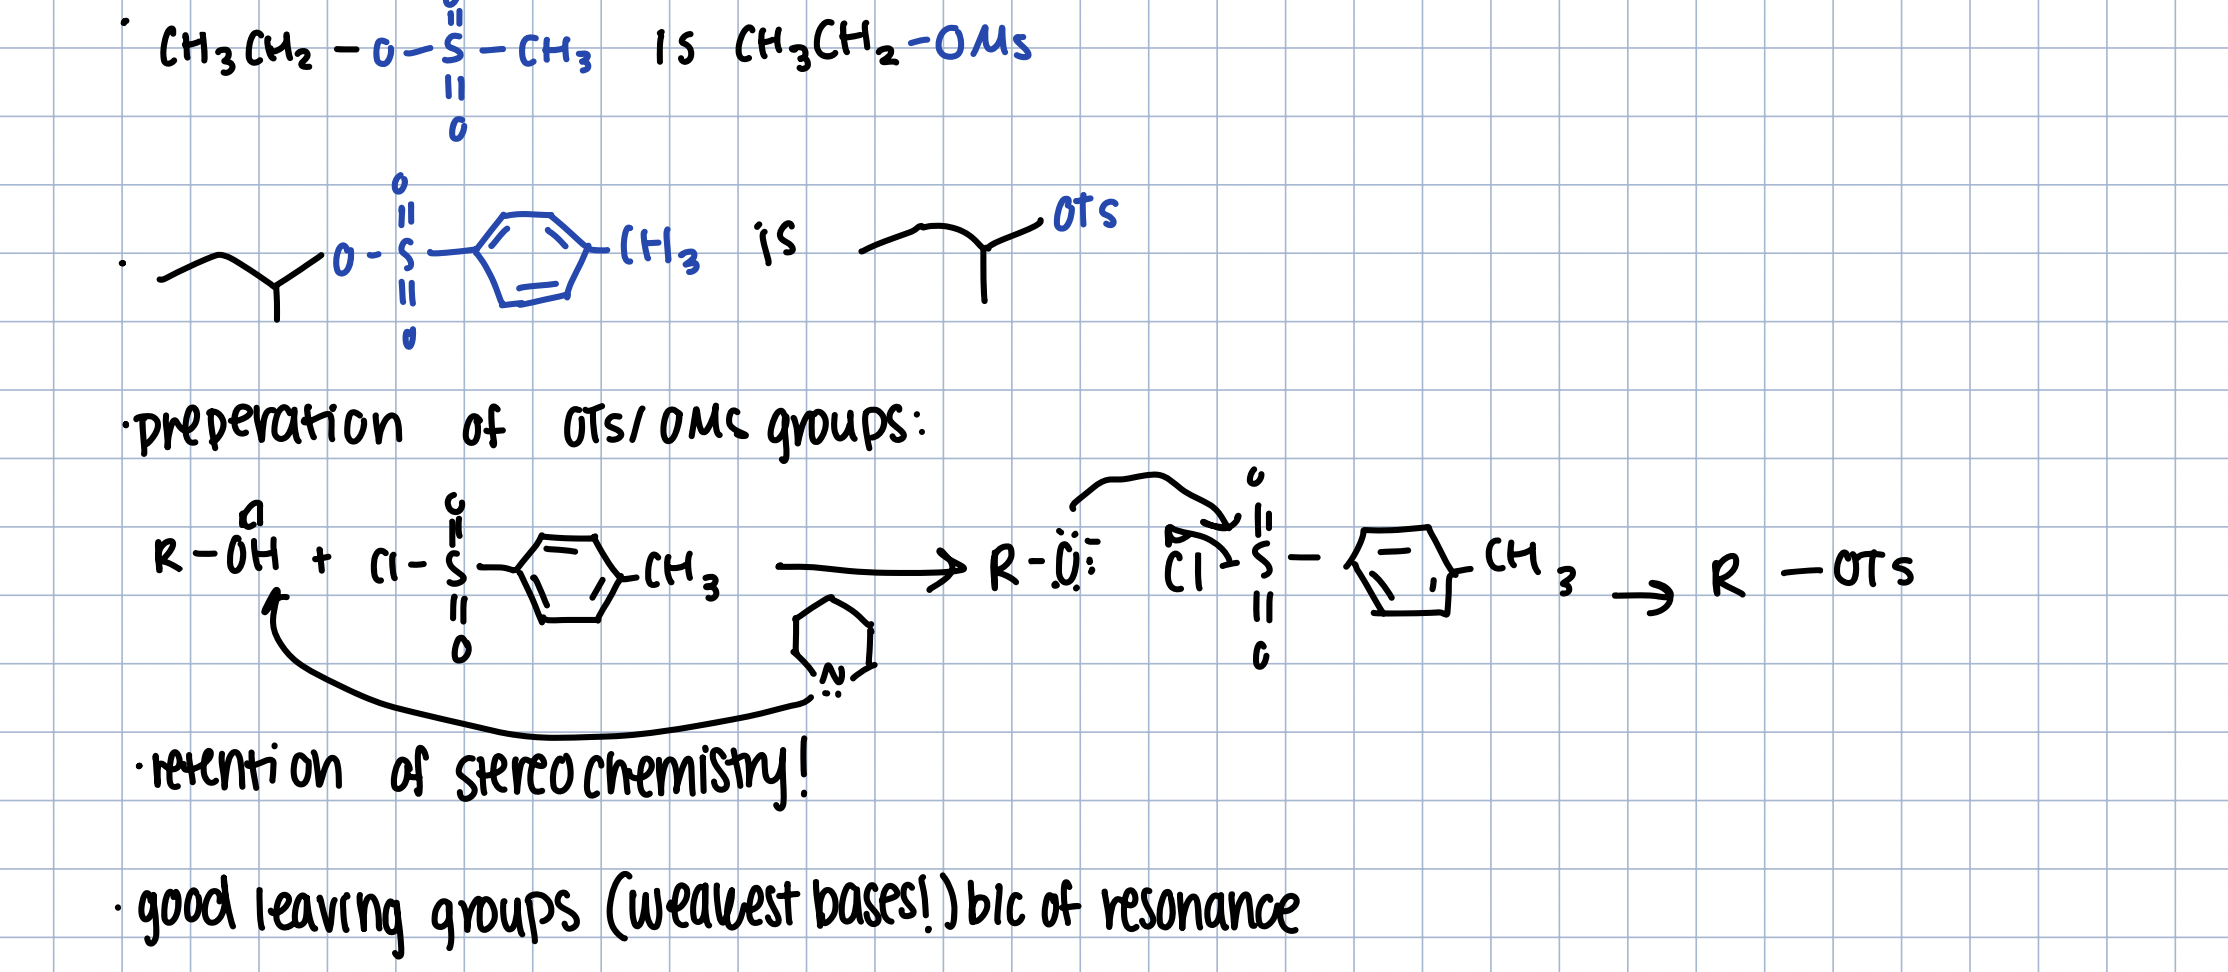 · CH3CH2 — O — S — CH3 is CH3CH2 - OMs
O
O
· O - S CH3 is OTs
O
· preperation of OTs/OMs groups:
R - OH + Cl - S CH3 → R - Ö: Cl - S - CH3 → R — OTs
O O
N
· retention of stereochemistry!
· good leaving groups (weakest bases!) b/c of resonance